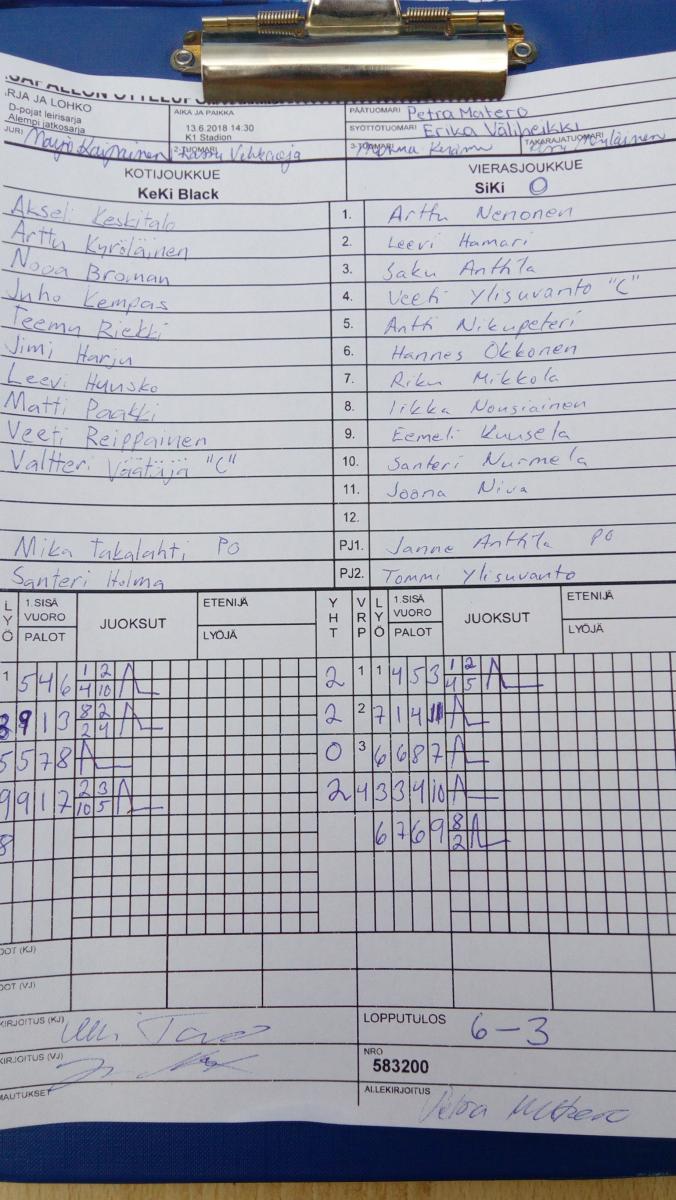 RJA JA LOHKO
D-pojat leirisarja
Alempi jatkosarja
AIKA JA PAIKKA
13.6.2018 14:30
K1 Stadion
PÄÄTUOMARI Petra Matero
SYÖTTÖTUOMARI Erika Väliheikki
JURI
2-TUOMARI
3-TUOMARI
TAKARAJATUOMARI
KOTIJOUKKUE
KeKi Black
VIERASJOUKKUE
SiKi O
Akseli Keskitalo 1. Arttu Nenonen
Arttu Kyröläinen 2. Leevi Hamari
Nooa Broman 3. Saku Anttila
Juho Kempas 4. Veeti Ylisuvanto "C"
Teemu Riekki 5. Antti Nikupeteri
Jimi Harju 6. Hannes Okkonen
Leevi Huusko 7. Riku Mikkola
Matti Paakki 8. Iikka Nousiainen
Veeti Reippainen 9. Eemeli Kuusela
Valtteri Väätäjä "C" 10. Santeri Nurmela
11. Joona Niva
12.
Mika Takalahti PO PJ1. Janne Anttila PO
Santeri Holma PJ2. Tommi Ylisuvanto
LYÖ 1.SISÄ VUORO PALOT JUOKSUT ETENIJÄ LYÖJÄ YHT VRP LYÖ 1.SISÄ VUORO PALOT JUOKSUT ETENIJÄ LYÖJÄ
1 5 4 6 1/4 2/10 2 1 1 4 5 3 1/4 2/5
9 1 3 8/2 2/4 2 2 7 1 4
5 5 7 8 0 3 6 6 8 7
9 9 1 7 2/10 3/5 2 4 3 3 4 10
8 6 7 6 9 8/2
OOT (KJ)
OOT (VJ)
KIRJOITUS (KJ)
KIRJOITUS (VJ)
MAUTUKSET
LOPPUTULOS 6-3
NRO
583200
ALLEKIRJOITUS Petra Matero